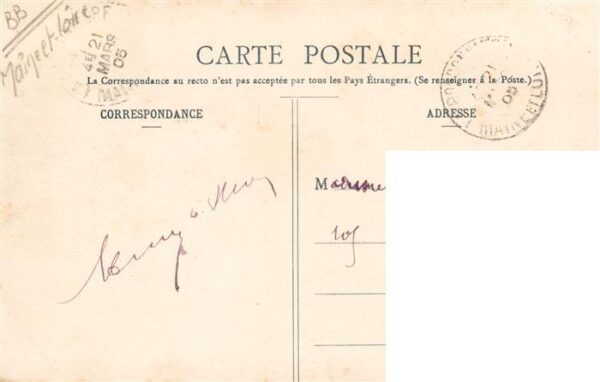 BB
Maine et Loire
21
MARS
05
CARTE POSTALE
La Correspondance au recto n'est pas acceptée par tous les Pays Étrangers. (Se renseigner à la Poste.)
CORRESPONDANCE
ADRESSE
21
05
MAINE-ET-LOIRE
Madame